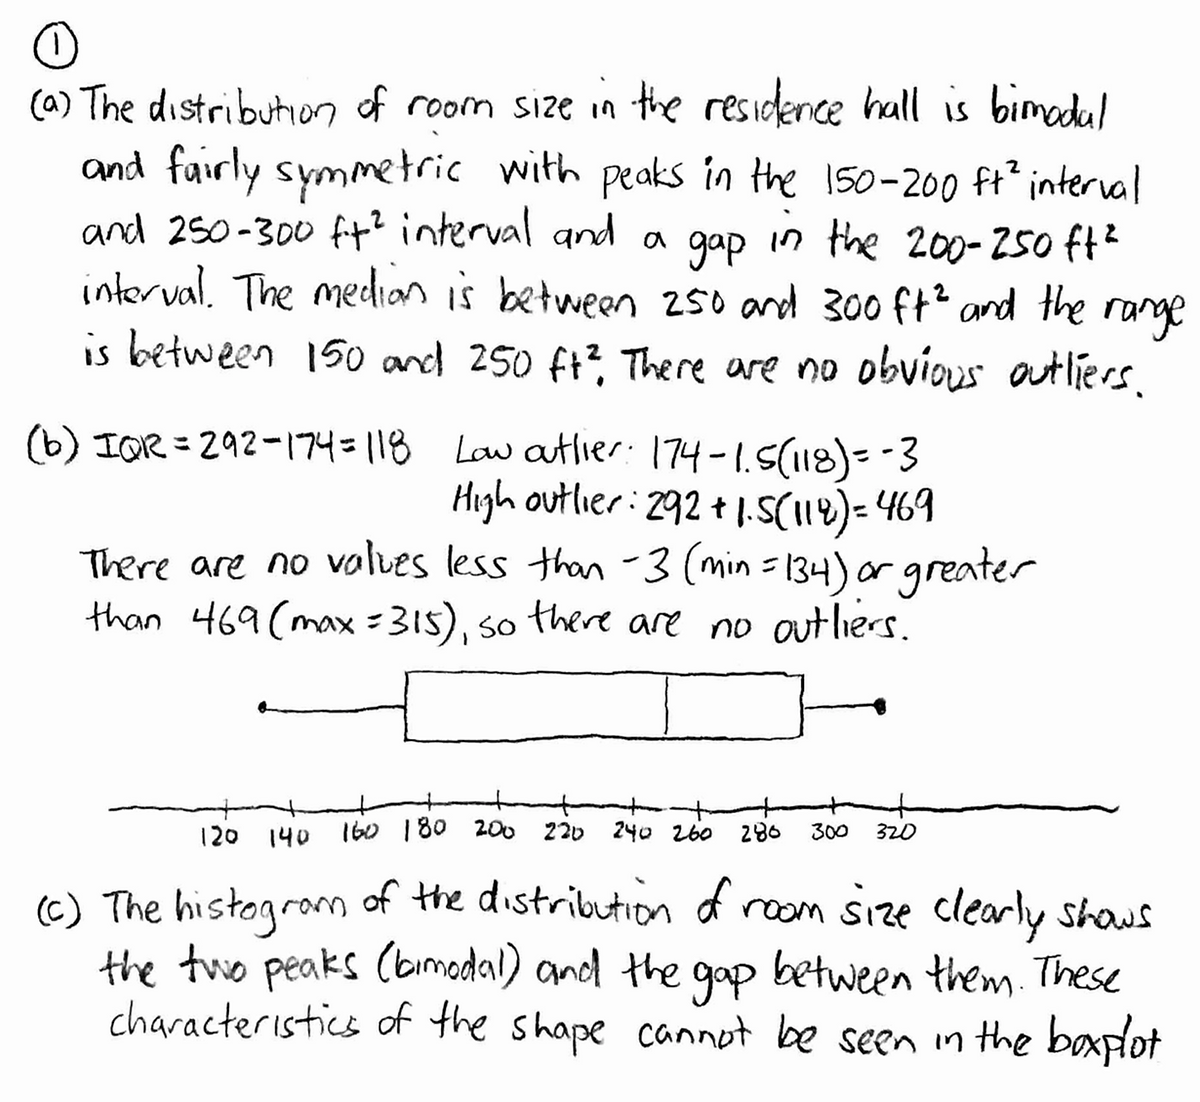 ①
(a) The distribution of room size in the residence hall is bimodal
and fairly symmetric with peaks in the 150-200 ft² interval
and 250-300 ft² interval and a gap in the 200-250 ft²
interval. The median is between 250 and 300 ft² and the range
is between 150 and 250 ft². There are no obvious outliers.
(b) IQR = 292-174=118 Low outlier: 174-1.5(118)=-3
High outlier: 292+1.5(118)=469
There are no values less than -3 (min=134) or greater
than 469 (max=315), so there are no outliers.
120 140 160 180 200 220 240 260 280 300 320
(c) The histogram of the distribution of room size clearly shows
the two peaks (bimodal) and the gap between them. These
characteristics of the shape cannot be seen in the boxplot